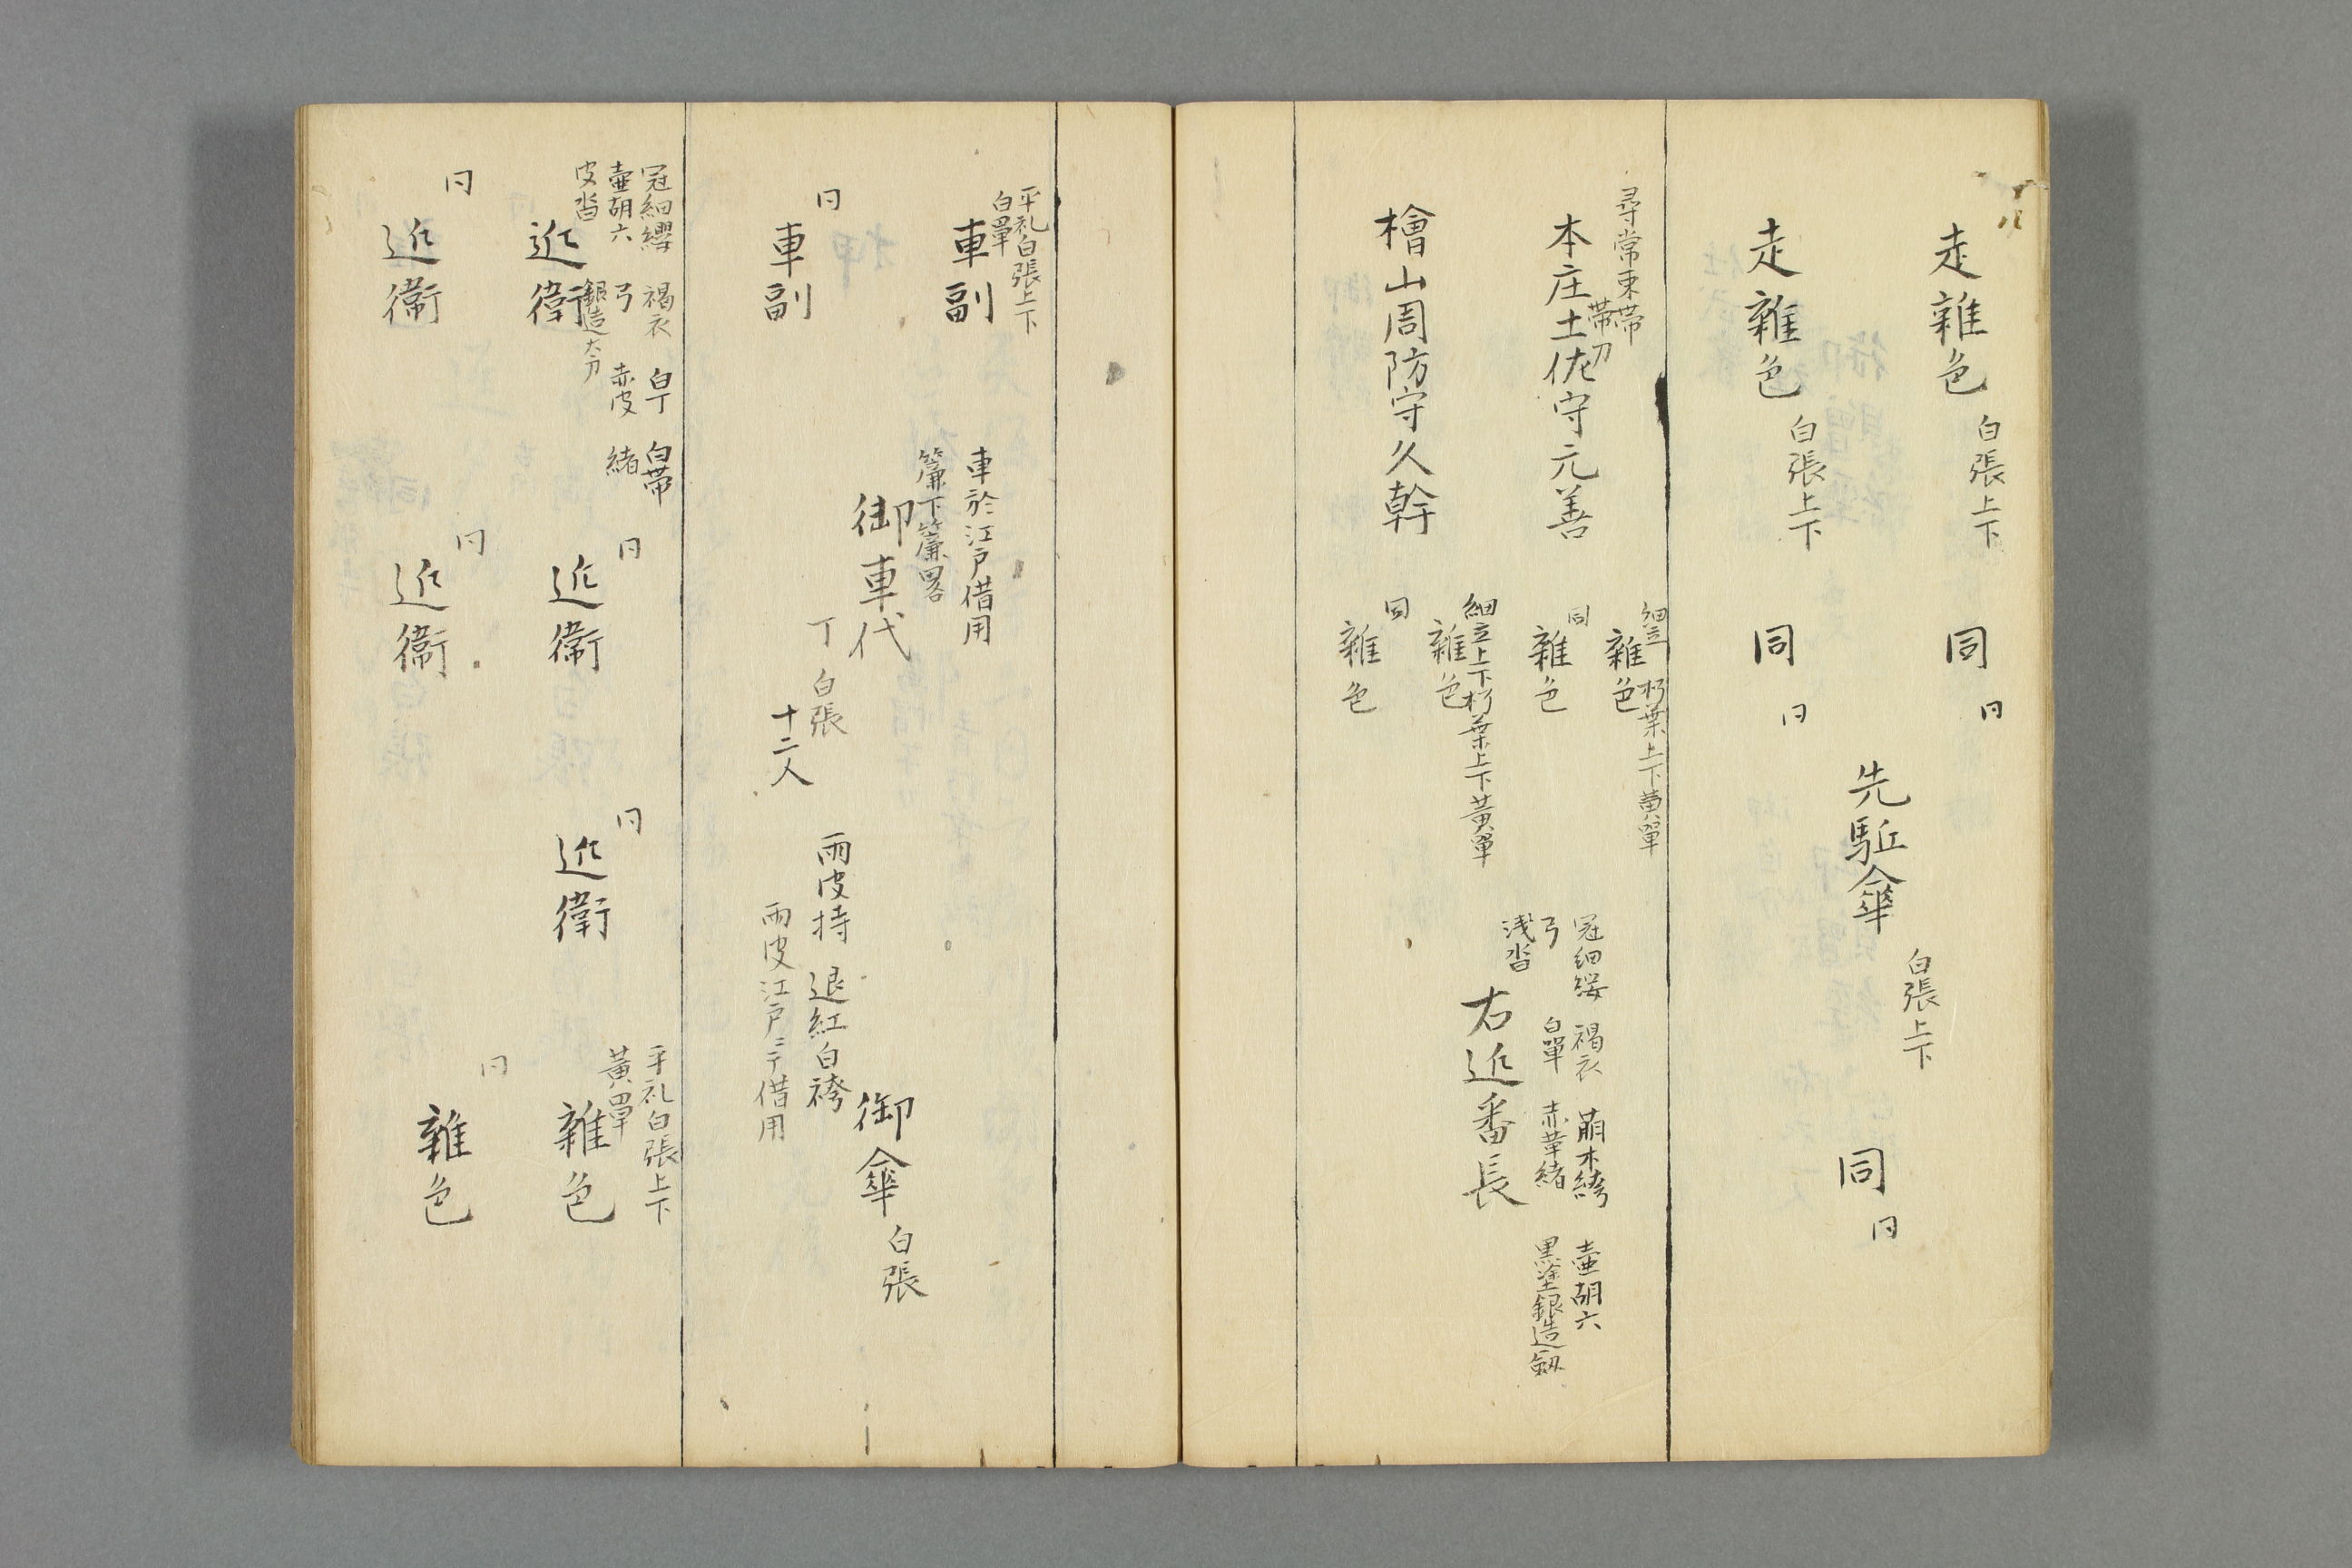 走雜色
白張上下
同
同
走雜色
白張上下
同
同
先駈傘
白張上下
同
同
尋常束帯
帯刀
本庄土佐守元善
檜山周防守久幹
細立 朽葉上下黄單
雜色
同
雜色
細立上下朽葉上下黄單
雜色
同
雜色
冠細綏 褐衣 萠木袴 壷胡六
弓 白單 赤革緒 黒塗銀造剱
浅沓
右近番長
平礼白張上下
白單
車副
同
車副
車於江戸借用
簾下簾畧
御車代
丁 白張
十二人
雨皮持 退紅白袴
雨皮江戸ニテ借用
御傘
白張
冠細纓 褐衣 白丁 白帯
壷胡六 弓 赤皮 緒
皮沓 銀造太刀
近衛
同
近衛
同
近衛
同
近衛
同
近衛
平礼白張上下
黄單
雜色
同
雜色